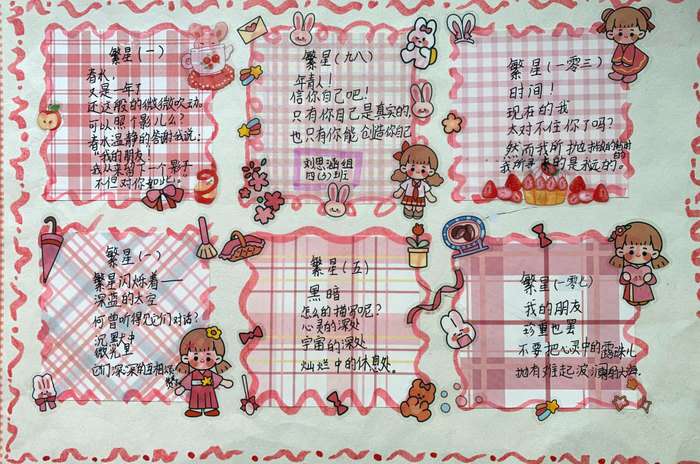 繁星(一)
春水,
又是一年了
还这般的微微吹动。
可以照个影儿么?
春水温静的答谢我说:
"我的朋友!
我从来留下一个影子
不但对你如此。
繁星(九八)
年青人!
信你自己吧!
只有你自己是真实的,
也只有你能创造你自己
刘思涵组
四(3)班
繁星(一零三)
时间!
现在的我
太对不住你了吗?
然而我所抛撇的
我所的是永远的。
繁星(一)
繁星闪烁着——
深蓝的太空
何曾听得见它们对话?
沉默中
微光里
它们深深的互相颂赞
繁星(五)
黑暗
怎么的描写呢?
心灵的深处
宇宙的深处
灿烂中的休息处。
繁星(一零七)
我的朋友
珍重也罢
不要把心灵中的露珠儿
抛有难起波澜的大海